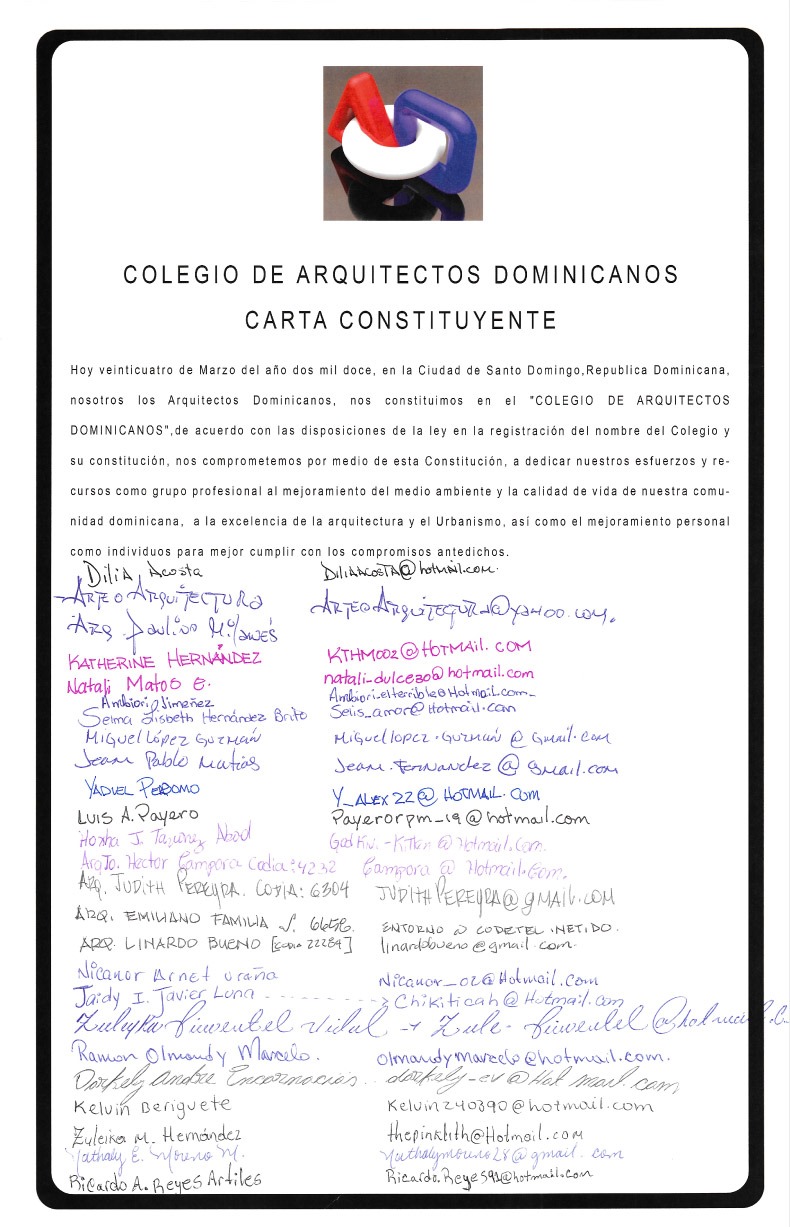 COLEGIO DE ARQUITECTOS DOMINICANOS
CARTA CONSTITUYENTE
Hoy veinticuatro de Marzo del año dos mil doce, en la Ciudad de Santo Domingo,Republica Dominicana,
nosotros los Arquitectos Dominicanos, nos constituimos en el "COLEGIO DE ARQUITECTOS
DOMINICANOS",de acuerdo con las disposiciones de la ley en la registración del nombre del Colegio y
su constitución, nos comprometemos por medio de esta Constitución, a dedicar nuestros esfuerzos y re-
cursos como grupo profesional al mejoramiento del medio ambiente y la calidad de vida de nuestra comu-
nidad dominicana, a la excelencia de la arquitectura y el Urbanismo, así como el mejoramiento personal
como individuos para mejor cumplir con los compromisos antedichos.
Dilia Acosta DiliaAcosta@hotmail.com.
Arteo Arquitectura
Arq. Paulino
KATHERINE HERNÁNDEZ KTHM002@HOTMAIL.COM
Natali Matos E. natali-dulce30@hotmail.com
Ambiori Jimeñez Ambiori-elterrible@Hotmail.com_
Selma Lisbeth Hernández Brito Selis_amor@Hotmail.com
Miguel López Guzmán Miguellopez.Guzmán@Gmail.com
Jean Pablo Matias Jean.Fernandez@Gmail.com
YADIEL PERDOMO Y_ALEX22@HOTMAIL.COM
Luis A. Payero Payerorpm_19@hotmail.com
J. Abod @Hotmail.com.
ArqTo. Hector Campora Codia:4232 Campora@Hotmail.com.
ARQ. JUDITH PEREYRA. CODIA: 6304 JUDITHPEREYRA@gmail.com
ARQ. EMILIANO FAMILIA S. 6656. ENTORNO@CODETEL.NET.DO.
ARQ. LINARDO BUENO [CODIA 22284] linardobueno@gmail.com.
Nicanor Arnet Ureña Nicanor_02@Hotmail.com
Jaidy I. Javier Luna - - - - - - -> Chikiticah@Hotmail.com
Zuleyka Pimentel Vidal → Zule-Pimentel@hotmail.c
Ramon Olmandy Marcelo. Olmandymarcelo@hotmail.com.
Dorkely Andre Encarnacion. dorkely-ev@Hotmail.com
Kelvin Beriguete Kelvin240390@hotmail.com
Zuleika M. Hernández thepinklith@Hotmail.com
Nathaly E. Moreno M. Nathalymoreno28@gmail.com
Ricardo A. Reyes Artiles Ricardo.Reyes91@hotmail.com